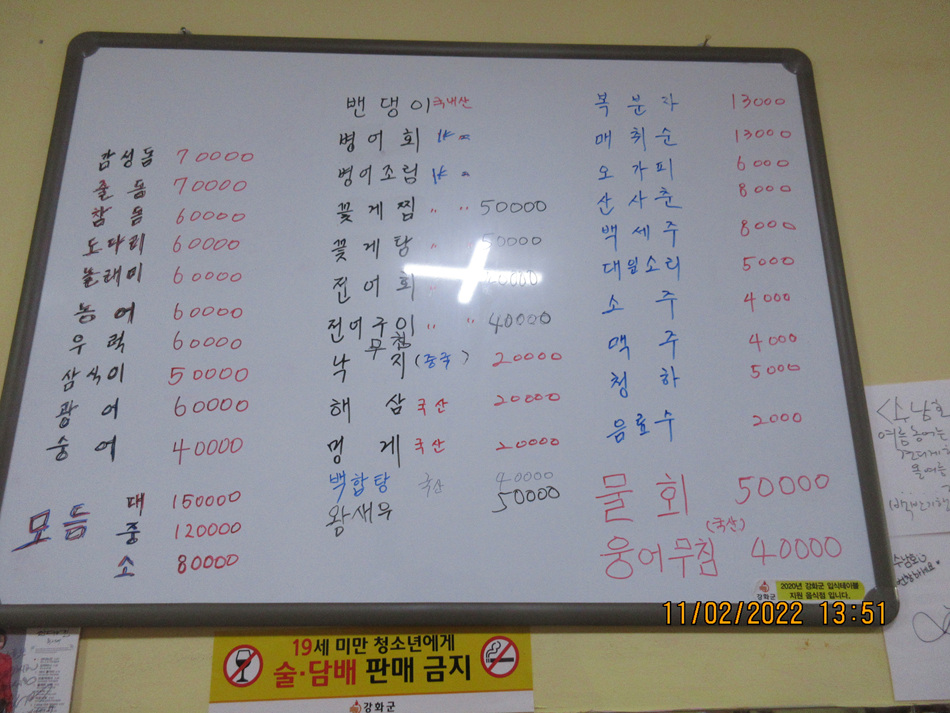 감성돔 70000
줄돔 70000
참돔 60000
도다리 60000
놀래미 60000
농어 60000
우럭 60000
삼식이 50000
광어 60000
숭어 40000
모듬 대 150000
중 120000
소 80000
밴댕이 국내산
병어회
병어조림
꽃게찜 〃 〃 50000
꽃게탕 〃 50000
전어회 〃
전어구이 〃 〃 40000
무침
낙지 (중국) 20000
해삼 국산 20000
멍게 국산 20000
백합탕 국산 40000
왕새우 50000
복분자 13000
매취순 13000
오가피 6000
산사춘 8000
백세주 8000
대월소리 5000
소주 4000
맥주 4000
청하 5000
음료수 2000
물회 50000
(국산)
웅어무침 40000
강화군
2020년 강화군 입식테이블
지원 음식점 입니다.
11/02/2022 13:51
19세 미만 청소년에게
술·담배 판매 금지
강화군
여름 농어는